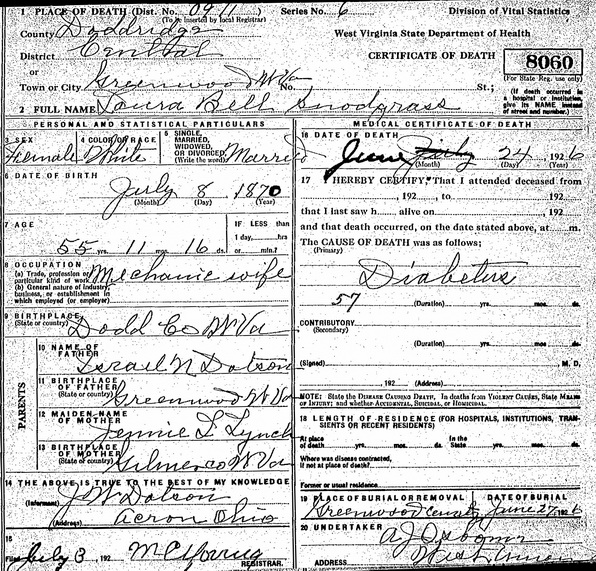 1 PLACE OF DEATH (Dist. No. 0911 Series No. 6 Division of Vital Statistics
(To be inserted by local Registrar)
County Doddridge West Virginia State Department of Health
District Central CERTIFICATE OF DEATH 8060
or (For State Reg. use only)
Town or City Greenwood W Va No. St.; (If death occurred in a hospital or institution, give its NAME instead of street and number.)
2 FULL NAME Laura Bell Snodgrass
PERSONAL AND STATISTICAL PARTICULARS
3 SEX Female
4 COLOR OR RACE White
5 SINGLE, MARRIED, WIDOWED, OR DIVORCED, (Write the word) Married
6 DATE OF BIRTH
July 8 1870
(Month) (Day) (Year)
7 AGE IF LESS than
55 yrs. 11 mos. 16 ds. 1 day,....hrs
or ....min.?
8 OCCUPATION
(a) Trade, profession or particular kind of work Mechanic wife
(b) General nature of industry, business, or establishment in which employed (or employer)
9 BIRTHPLACE
(State or country) Dodd Co W Va
PARENTS
10 NAME OF FATHER Israel N Dotson
11 BIRTHPLACE OF FATHER
(State or country) Greenwood W Va
12 MAIDEN NAME OF MOTHER Jennie L Lynch
13 BIRTHPLACE OF MOTHER
(State or country) Gilmer co W Va
14 THE ABOVE IS TRUE TO THE BEST OF MY KNOWLEDGE
(Informant) J W Dotson
(Address) Acron Ohio
15
Filed July 3, 192
REGISTRAR.
MEDICAL CERTIFICATE OF DEATH
16 DATE OF DEATH
June July 24, 1926
(Month) (Day) (Year)
17 I HEREBY CERTIFY, That I attended deceased from
, 192 to , 192
that I last saw h alive on , 192
and that death occurred, on the date stated above, at m.
The CAUSE OF DEATH was as follows:
(Primary)
Diabetus
57 (Duration) yrs. mos. ds.
CONTRIBUTORY
(Secondary)
(Duration) yrs. mos. ds.
(Signed) M. D.
, 192 (Address)
NOTE: State the DISEASE CAUSING DEATH, In deaths from VIOLENT CAUSES, State MEANS OF INJURY; and whether ACCIDENTAL, SUICIDAL, or HOMICIDAL.
18 LENGTH OF RESIDENCE (FOR HOSPITALS, INSTITUTIONS, TRANSIENTS OR RECENT RESIDENTS)
At place of death yrs. mos. ds. In the State yrs. mos. ds.
Where was disease contracted, if not at place of death?
Former or usual residence
19 PLACE OF BURIAL OR REMOVAL DATE OF BURIAL
Greenwood June 27 1926
20 UNDERTAKER A J Osborn
ADDRESS West Union